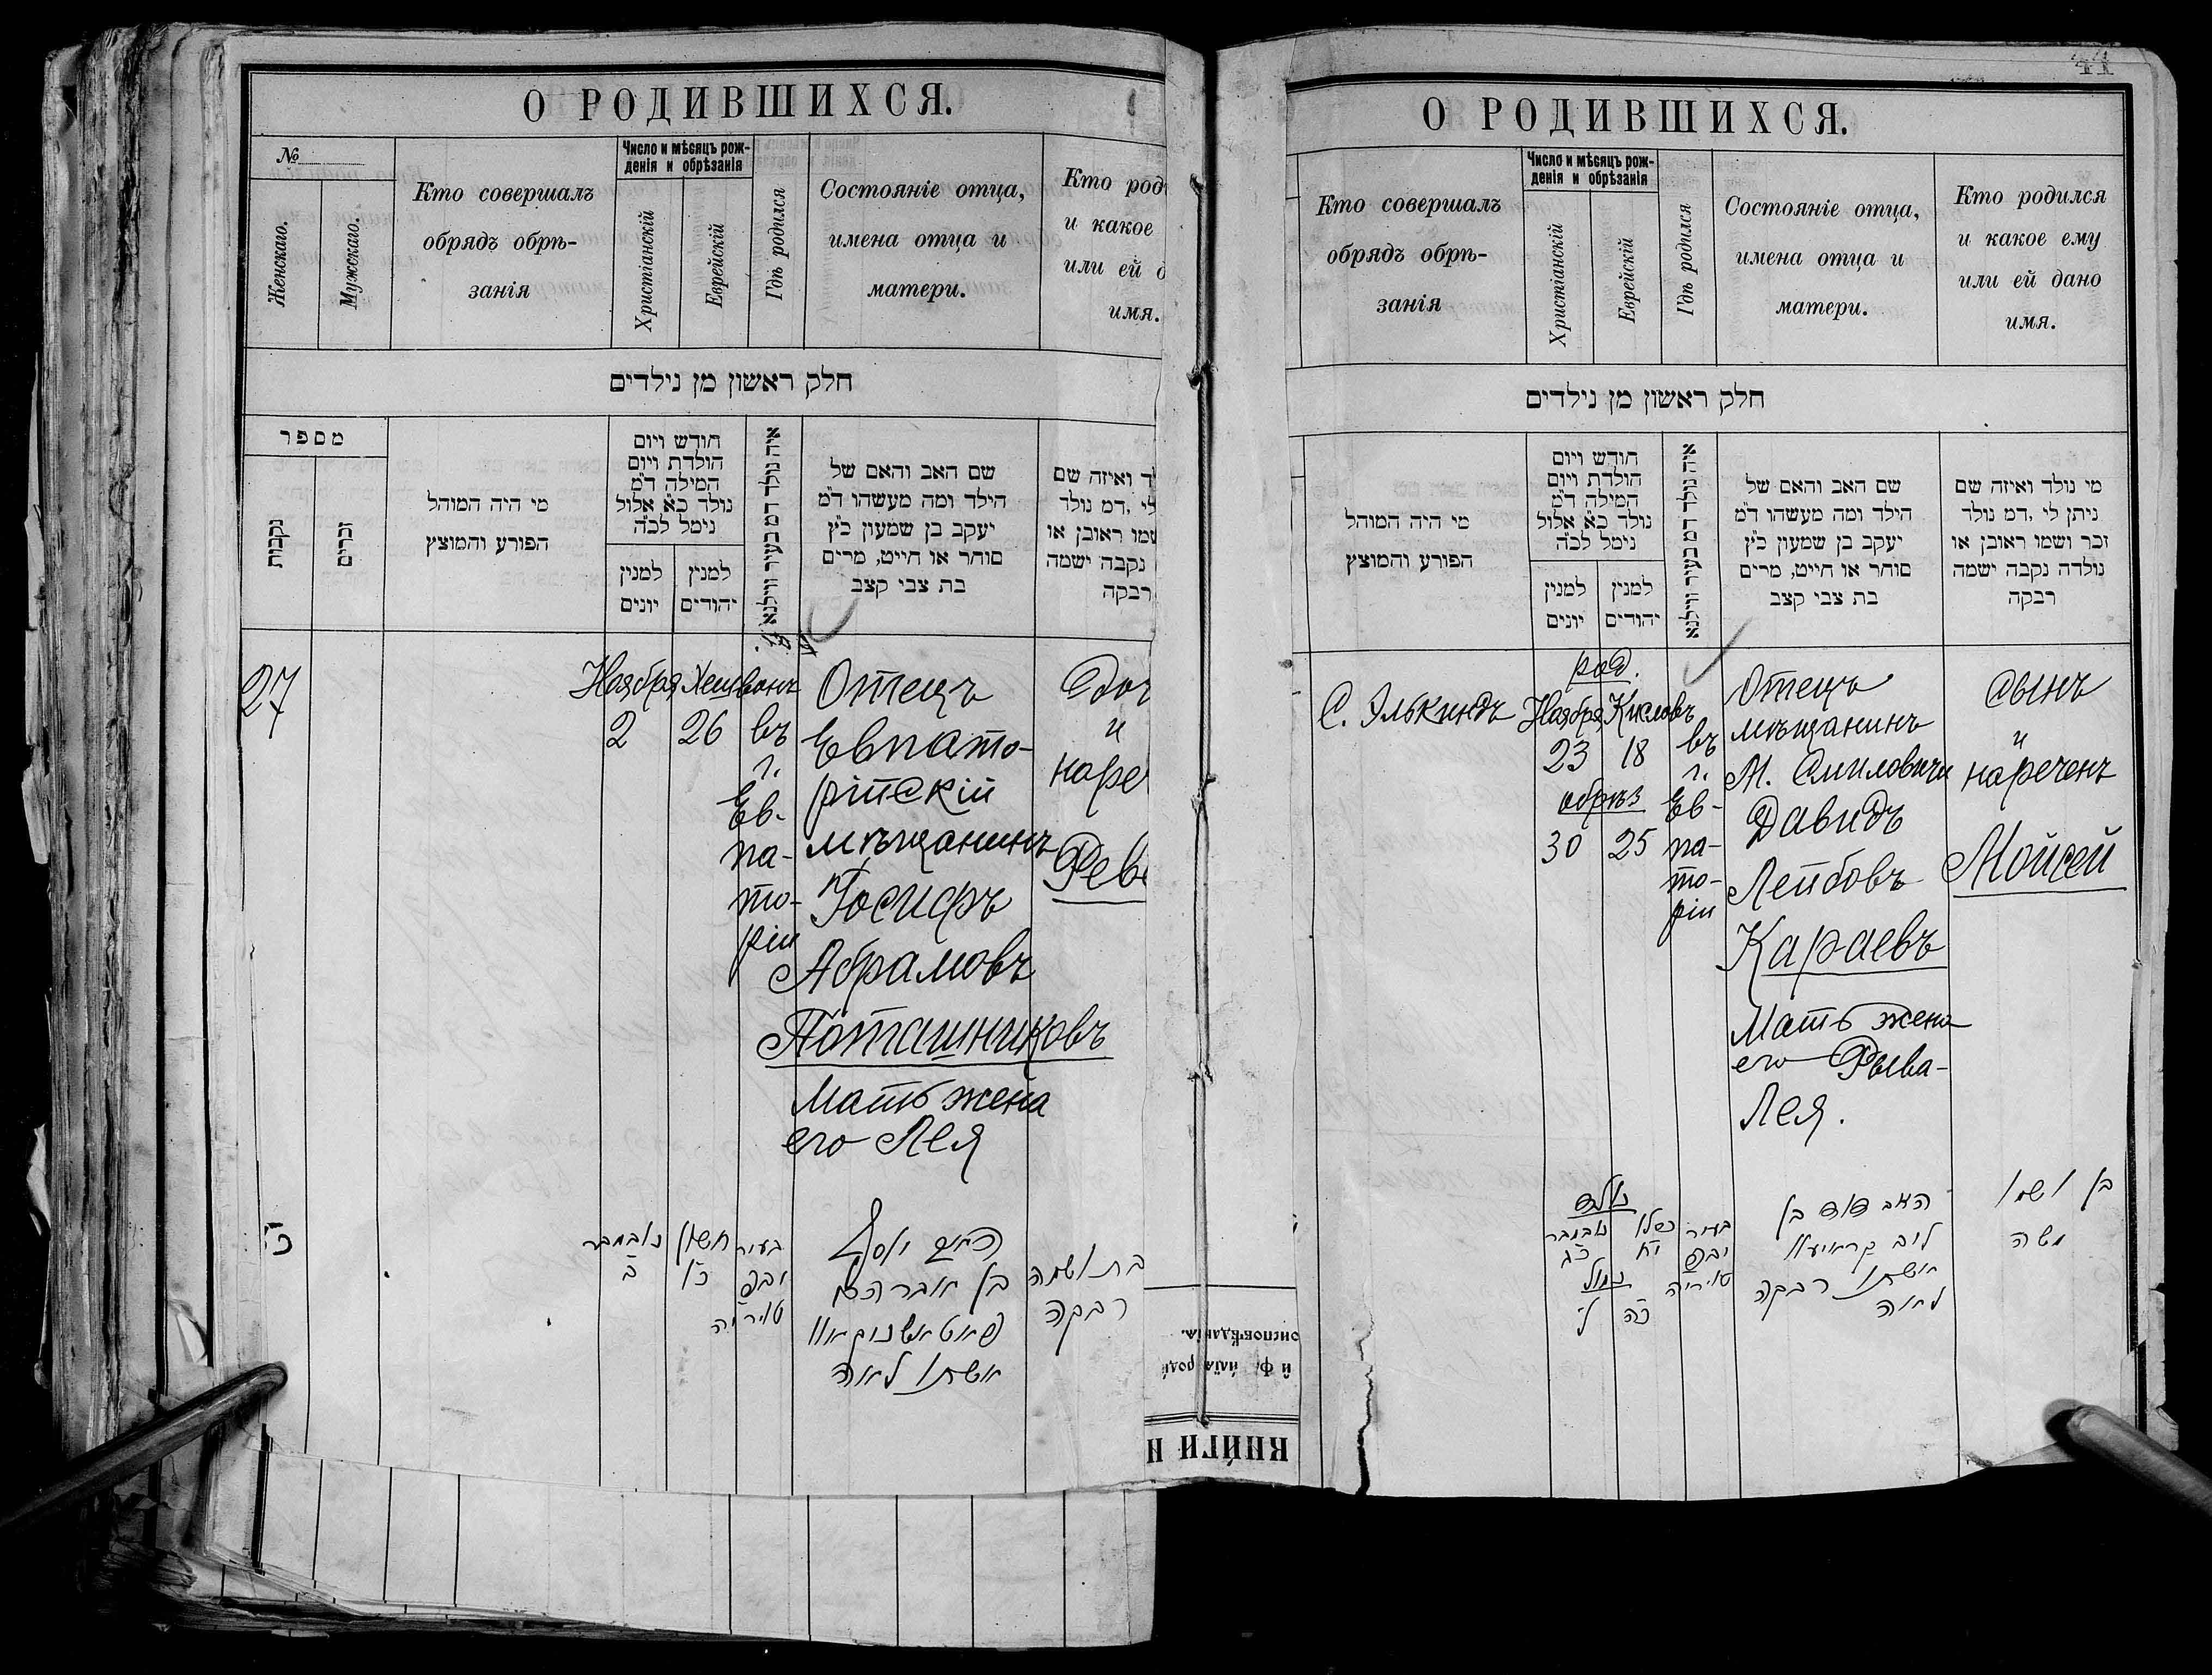 О РОДИВШИХСЯ.
№
Женскаго.
Мужскаго.
Кто совершалъ
обрядъ обрѣ-
занія
Число и мѣсяцъ рож-
денія и обрѣзанія
Христіанскій
Еврейскій
Гдѣ родился
Состояніе отца,
имена отца и
матери.
Кто род
и какое
или ей д
имя.
חלק ראשון מן נילדים
מספר
נקבות
זכרים
מי היה המוהל
הפורע והמוצץ
חודש ויום
הולדת ויום
המילה ד״מ
נולד כ״א אלול
נימל לכ״ה
למנין
יונים
למנין
יהודים
איה נולד דמ בעיר ווילנא
שם האב והאם של
הילד ומה מעשהו ד״מ
יעקב בן שמעון כ״ץ
סוחר או חייט, מרים
בת צבי קצב
ד ואיזה שם
לי ,דמ נולד
שמו ראובן או
נקבה ישמה
רבקה
27
Ноября Хешванъ
2 26
въ
г.
Ев-
па-
то-
ріи
Отецъ
Евпато-
рійскій
мѣщанинъ
Іосифъ
Абрамовъ
Поташниковъ
Мать жена
его Лея
Доч
и
наре
Рев
כ״ז
נובמבר
ב
חשון
כ״ו
בעיר
יבפ
טוריה
האב יוסף
בן אברהם
פאטאשניקאוו
אשתו לאה
בת ושמה
רבקה
О РОДИВШИХСЯ.
41
Кто совершалъ
обрядъ обрѣ-
занія
Число и мѣсяцъ рож-
денія и обрѣзанія
Христіанскій
Еврейскій
Гдѣ родился
Состояніе отца,
имена отца и
матери.
Кто родился
и какое ему
или ей дано
имя.
חלק ראשון מן נילדים
מי היה המוהל
הפורע והמוצץ
חודש ויום
הולדת ויום
המילה ד״מ
נולד כ״א אלול
נימל לכ״ה
למנין
יונים
למנין
יהודים
איה נולד דמ בעיר ווילנא
שם האב והאם של
הילד ומה מעשהו ד״מ
יעקב בן שמעון כ״ץ
סוחר או חייט, מרים
בת צבי קצב
מי נולד ואיזה שם
ניתן לי ,דמ נולד
זכר ושמו ראובן או
נולדה נקבה ישמה
רבקה
С. Элькиндъ
род.
Ноября Кисловъ
23 18
обрѣз
30 25
въ
г.
Ев-
па-
то-
ріи
Отецъ
мѣщанинъ
М. Смиловичи
Давидъ
Лейбовъ
Караевъ
Мать жена
его Рыва-
Лея.
сынъ
и
нареченъ
Мойсей
נולד
נובמבר
כ״ג
כסלו
י״ח
נמול
ל
כ״ה
בעיר
יבפ
טוריה
האב דוד בן
ליב קראיעוו
אשתו רבקה
לאה
בן ושמו
משה
оисповѣданія.
КНИГИ И